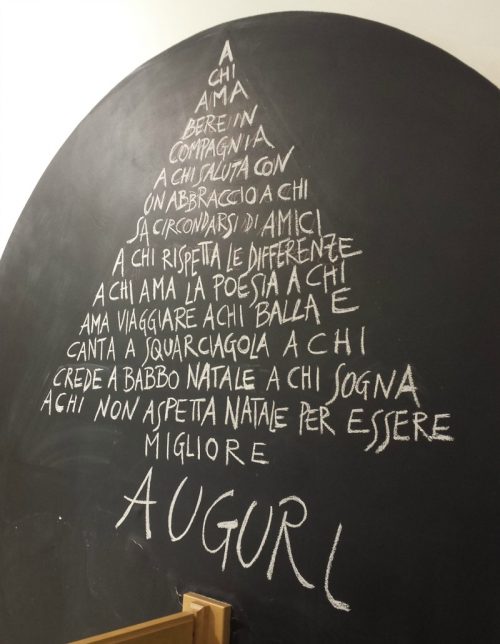 A
CHI
AMA
BERE IN
COMPAGNIA
A CHI SALUTA CON
UN ABBRACCIO A CHI
SA CIRCONDARSI DI AMICI
A CHI RISPETTA LE DIFFERENZE
A CHI AMA LA POESIA A CHI
AMA VIAGGIARE A CHI BALLA E
CANTA A SQUARCIAGOLA A CHI
CREDE A BABBO NATALE A CHI SOGNA
A CHI NON ASPETTA NATALE PER ESSERE
MIGLIORE
AUGURI